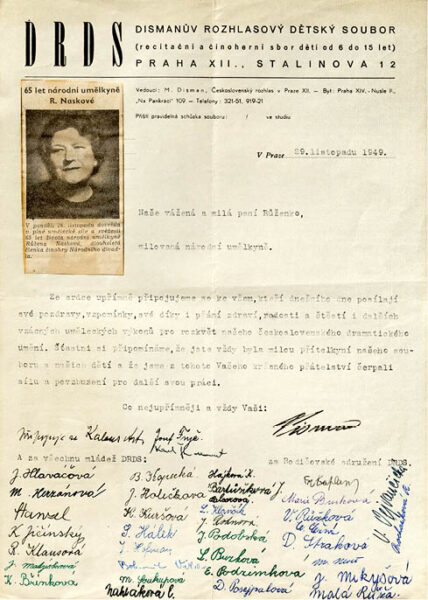 DRDS
DISMANŮV ROZHLASOVÝ DĚTSKÝ SOUBOR
(recitační a činoherní sbor dětí od 6 do 15 let)
PRAHA XII., STALINOVA 12
Vedoucí: M. Disman, Československý rozhlas v Praze XII. — Byt: Praha XIV.-Nusle II.,
„Na Pankráci" 109 — Telefony: 321-51, 919-21
Příští pravidelná schůzka souboru: / ve studiu
65 let národní umělkyně
R. Naskové
V pondělí 28. listopadu dovršila
v plné umělecké síle a svěžesti
65 let života národní umělkyně
Růžena Nasková, dlouholetá
členka činohry Národního divadla.
V Praze 29.listopadu 1949.
Naše vážená a milá paní Růženko,
milovaná národní umělkyně.
Ze srdce upřímně připojujeme se ke všem, kteří dnešního dne posílají
své pozdravy, vzpomínky, své díky i přání zdraví, radosti a štěstí i dalších
vzácných uměleckých výkonů pro rozkvět našeho československého dramatického
umění. Šťastni si připomínáme, že jste vždy byla milou přítelkyní našeho sou-
boru a mších dětí a že jsme z tohoto Vašeho krásného přátelství čerpali
sílu a povzbuzení pro další svou práci.
Co nejupřímněji a vždy Vaši:
Disman
Připojuje se
Josef
Karel
A za všechnu mládež DRDS:
za Rodičovské sdružení DRDS.
J. Hlaváčová
B. Kopecká
Hájková K.
M. Kazánová
J. Holečková
Bartůňková
Marie
Hanzal
K. Kuršová
V. Růžičková
K. Jičínský
S. Hálek
J. Podobská
D. Straková
R. Klausová
L. Burková
M. Soukupová
E. Podzimková
J. Mikyšová
K. Břínková
D. Pospíšilová
Malá Růža